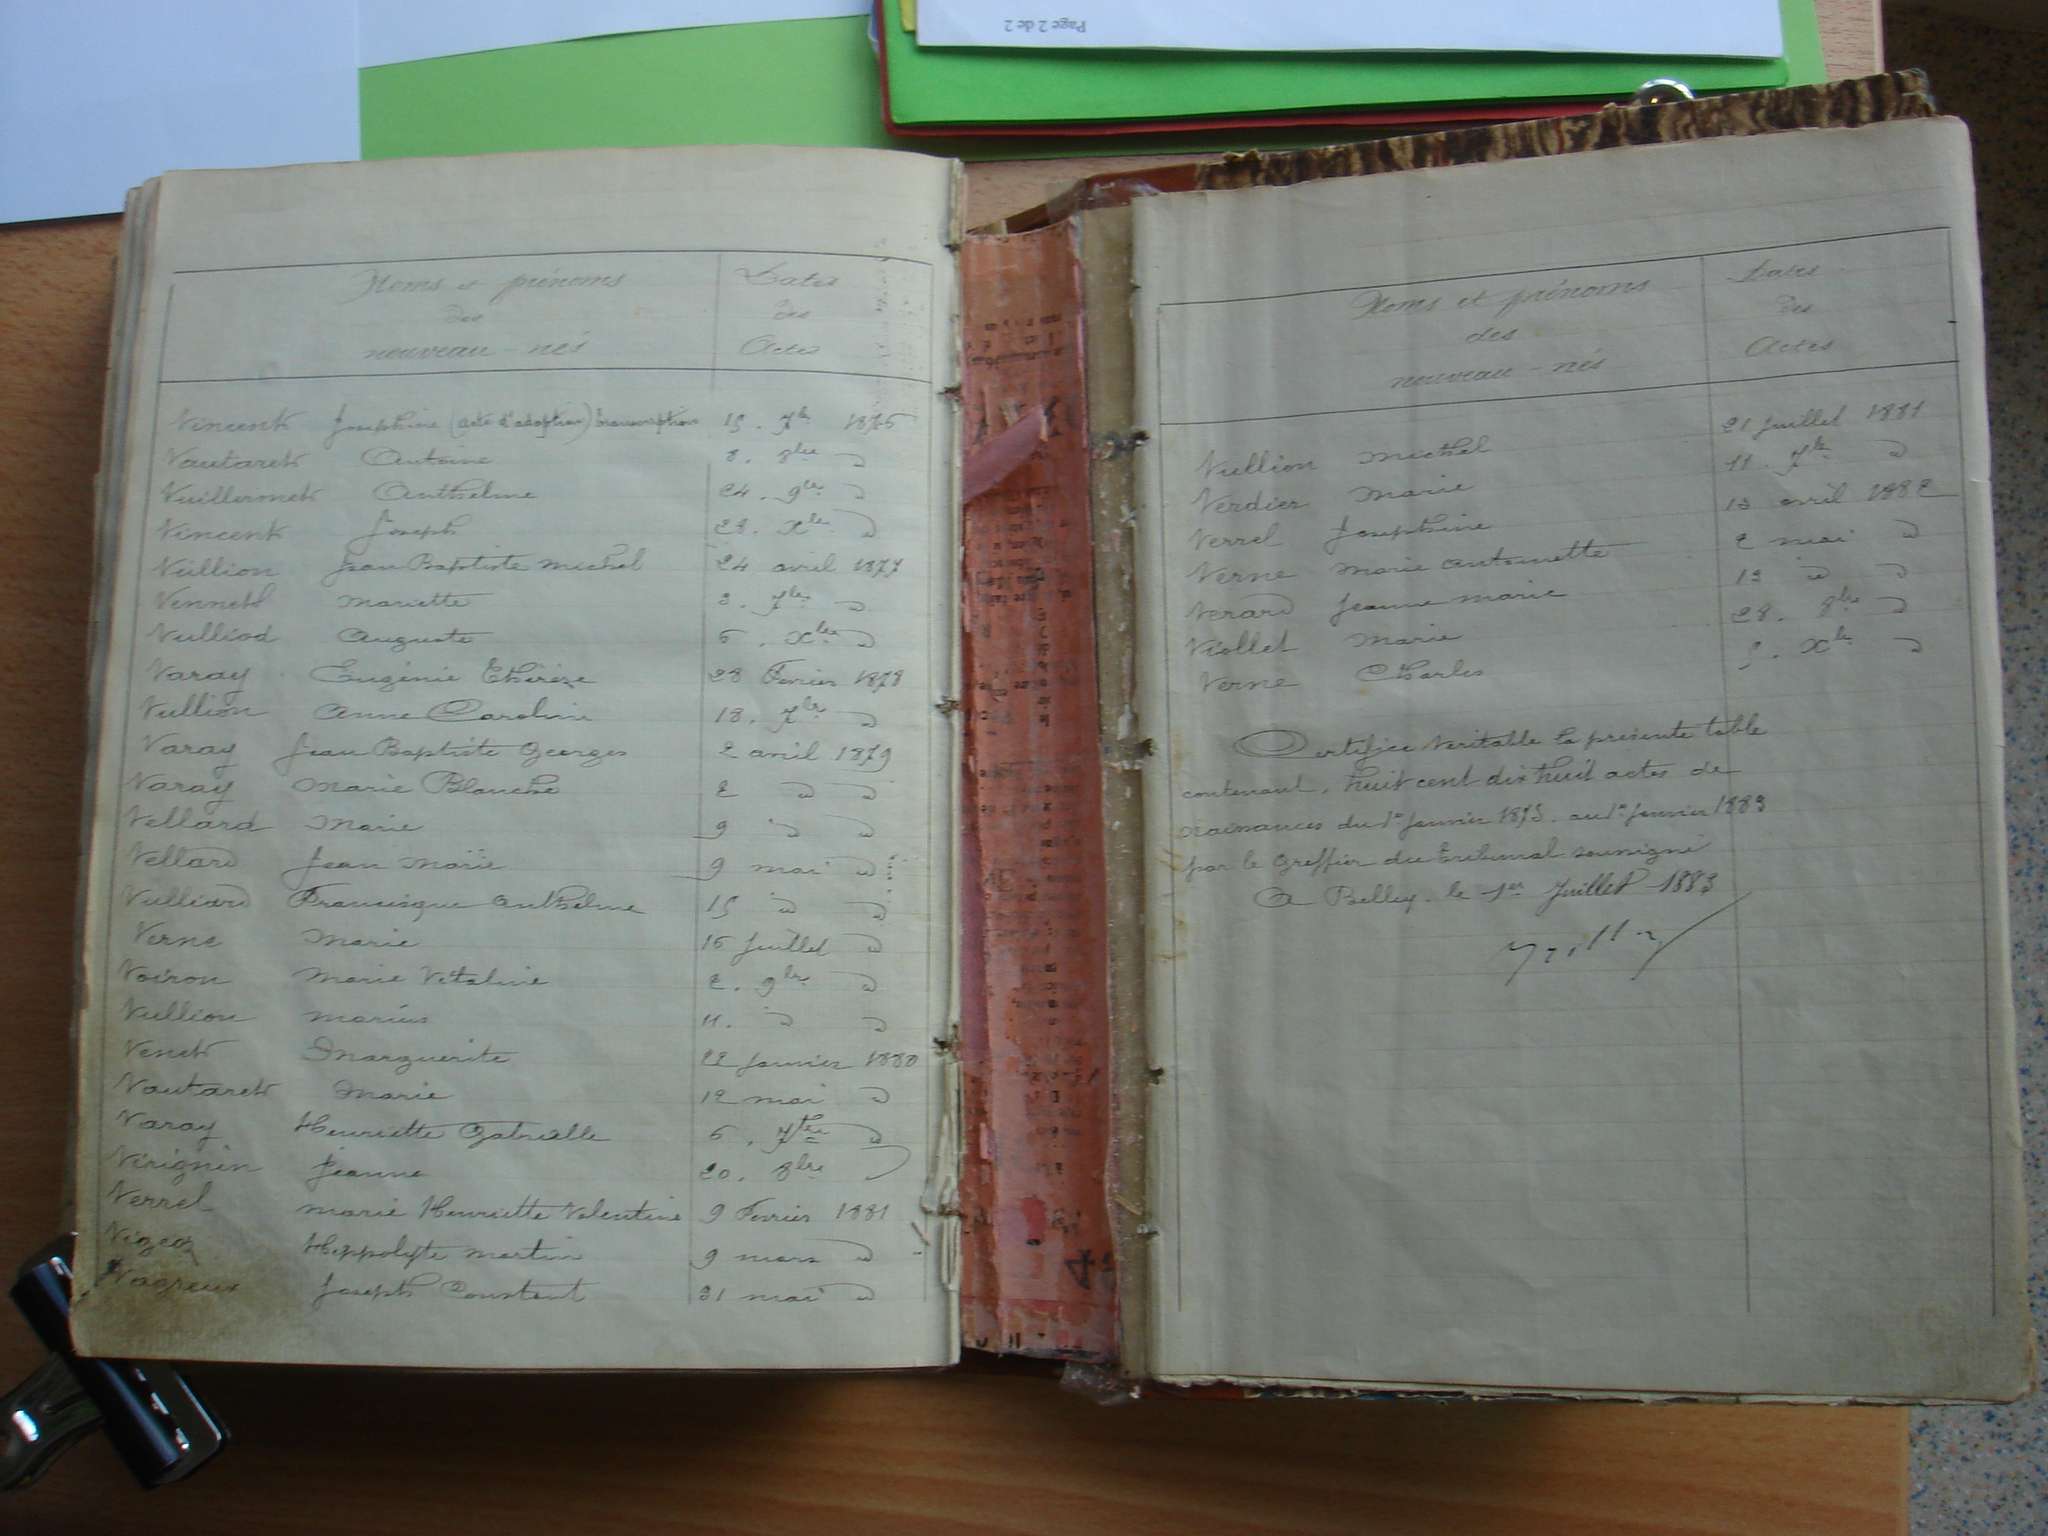 Page 2 de 2
Noms et prénoms
des
nouveau-nés
Dates
des
Actes
Vincent Joséphine (acte d'adoption) transcription 15. 7bre 1876
Vautaret Antoine 8. 8bre d
Vuillermet Anthelme 24. 9bre d
Vincent Joseph 28. Xbre d
Vullion Jean Baptiste Michel 24 avril 1877
Vennet Mariette 3. 7bre d
Vulliod Auguste 6. Xbre d
Varay Eugénie Thérèze 28 Fevrier 1878
Vullion Anne Caroline 18. 7bre d
Varay Jean Baptiste Georges 2 avril 1879
Varay Marie Blanche 2 d d
Vellard Marie 9 d d
Vellard Jean Marie 9 mai d
Vulliard Francisque Anthelme 15 d d
Verne Marie 16 Juillet d
Voiron Marie Vitaline 2. 9bre d
Vullion Marius 11. d d
Venet Marguerite 22 Janvier 1880
Vautaret Marie 12 mai d
Varay Henriette Gabrielle 6. 7bre d
Virignin Jeanne 20. 8bre d
Verrel Marie Henriette Valentine 9 Fevrier 1881
Hippolyte Martin 9 mars d
Joseph Constant 31 mai d
Noms et prénoms
des
nouveau-nés
Dates
des
Actes
Vullion Michel 21 Juillet 1881
Verdier Marie 11. 7bre d
Verrel Josephine 13 avril 1882
Verne Marie Antoinette 2 mai d
Verard Jeanne Marie 13 d d
Viollet Marie 28. 8bre d
Verne Charles 9. Xbre d
Certifiée Veritable la présente table
contenant, huit cent dix huit actes de
naissances du 1er Janvier 1873 au 1er Janvier 1883
par le Greffier du tribunal soussigné
A Belley, le 1er Juillet 1883